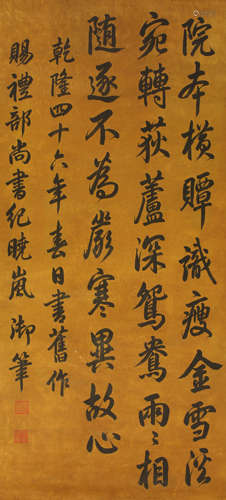 院本橫贉識瘦金雪溪
宛轉荻蘆深鴛鴦兩〻相
隨逐不為嚴寒異故心
乾隆四十六年春日書舊作
賜禮部尚書紀曉嵐 御筆